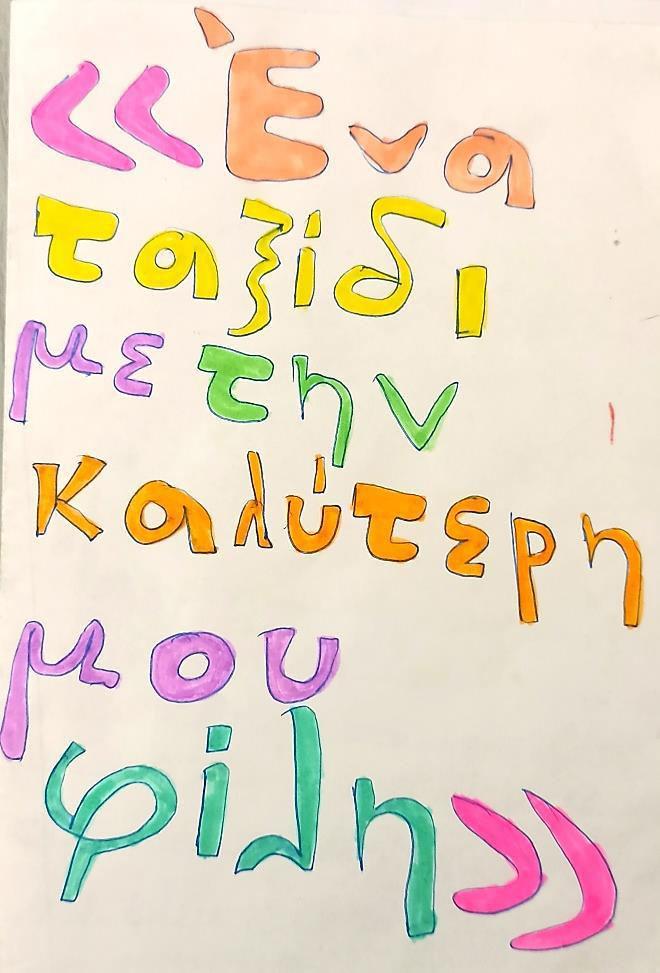 «Ένα
ταξίδι
με την
καλύτερη
μου
φίλη»